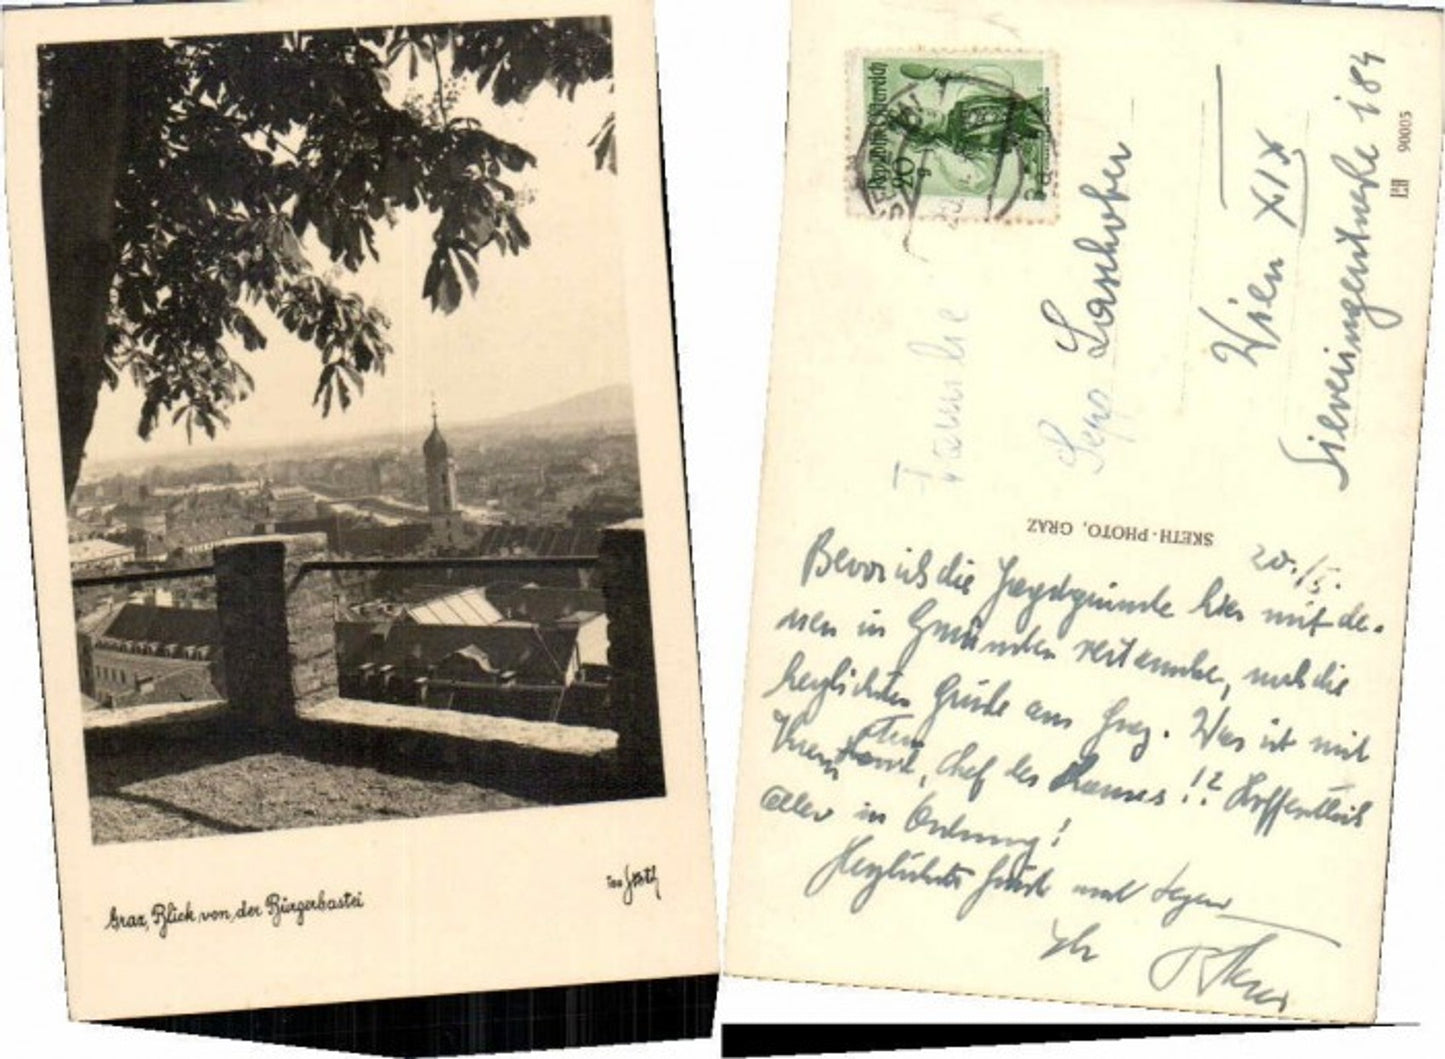 Graz, Blick von der Bürgerbastei
Republik Österreich
20
Familie
Sepp Laschober
Wien XIX
Sieveringerstraße 184
90005
SKETH-PHOTO, GRAZ
20./5.
Bevor ich die Jagdgründe hier mit de-
nen in Gmünden vertausche, noch die
herzlichsten Grüße aus Graz. Was ist mit
, Chef des Hauses!? Hoffentlich
alles in Ordnung!
Herzlichste Grüße und
Ihr